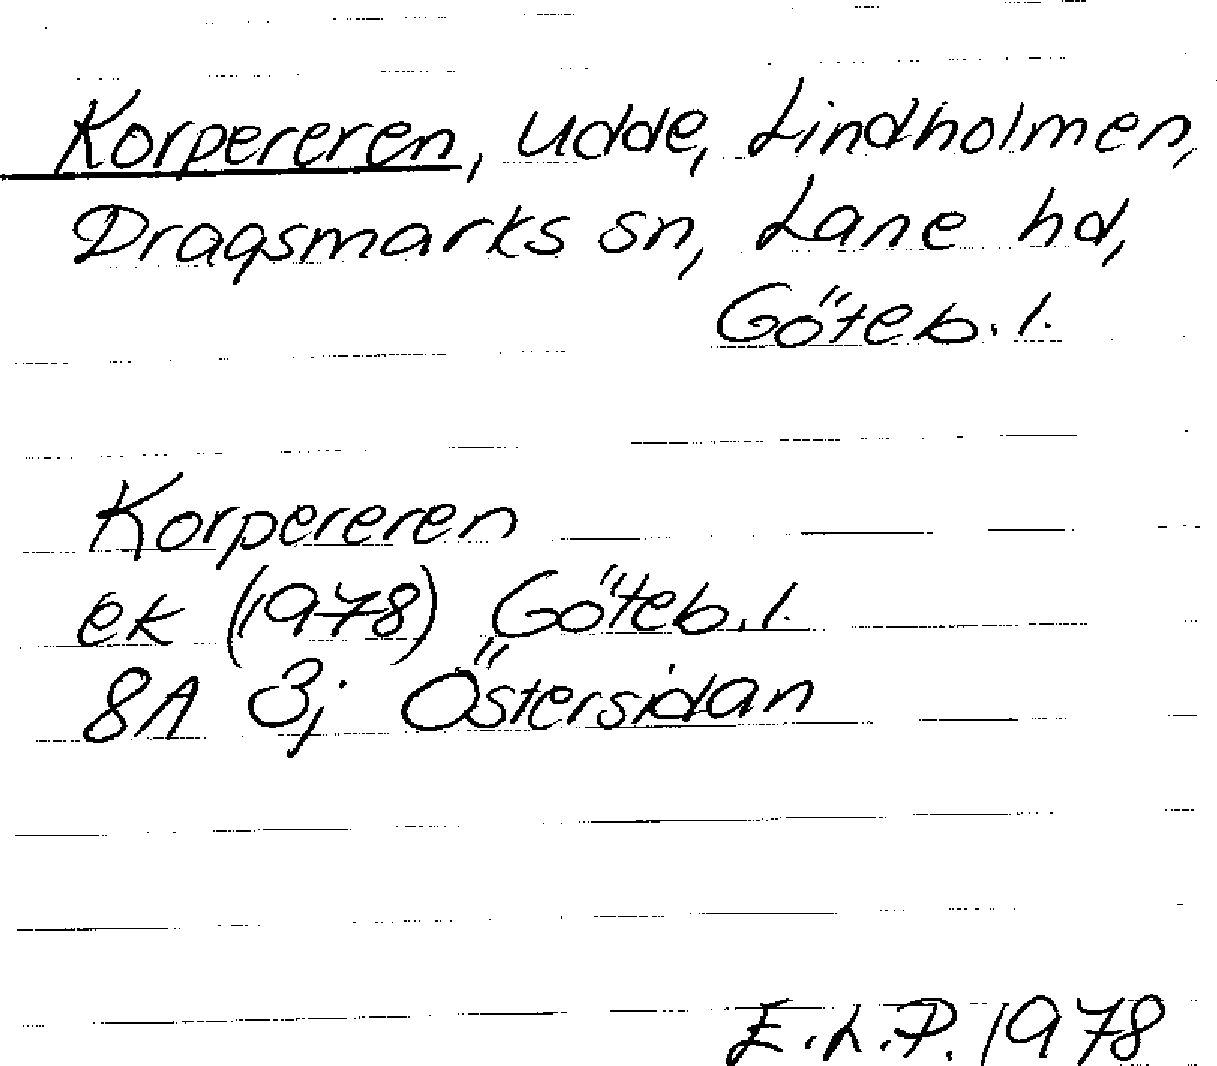 Korpereren, udde, Lindholmen,
Dragsmarks sn, Lane hd,
Göteb. l.
Korpereren
ek (1978) Göteb. l.
8A 3j Östersidan
E.L.P. 1978